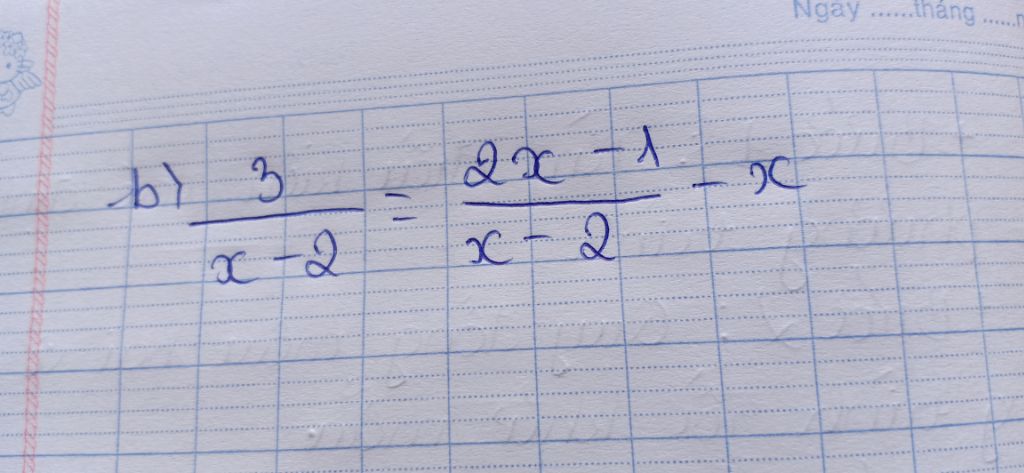 Ngày ......tháng ......n
b) \frac{3}{x-2} = \frac{2x-1}{x-2} - x